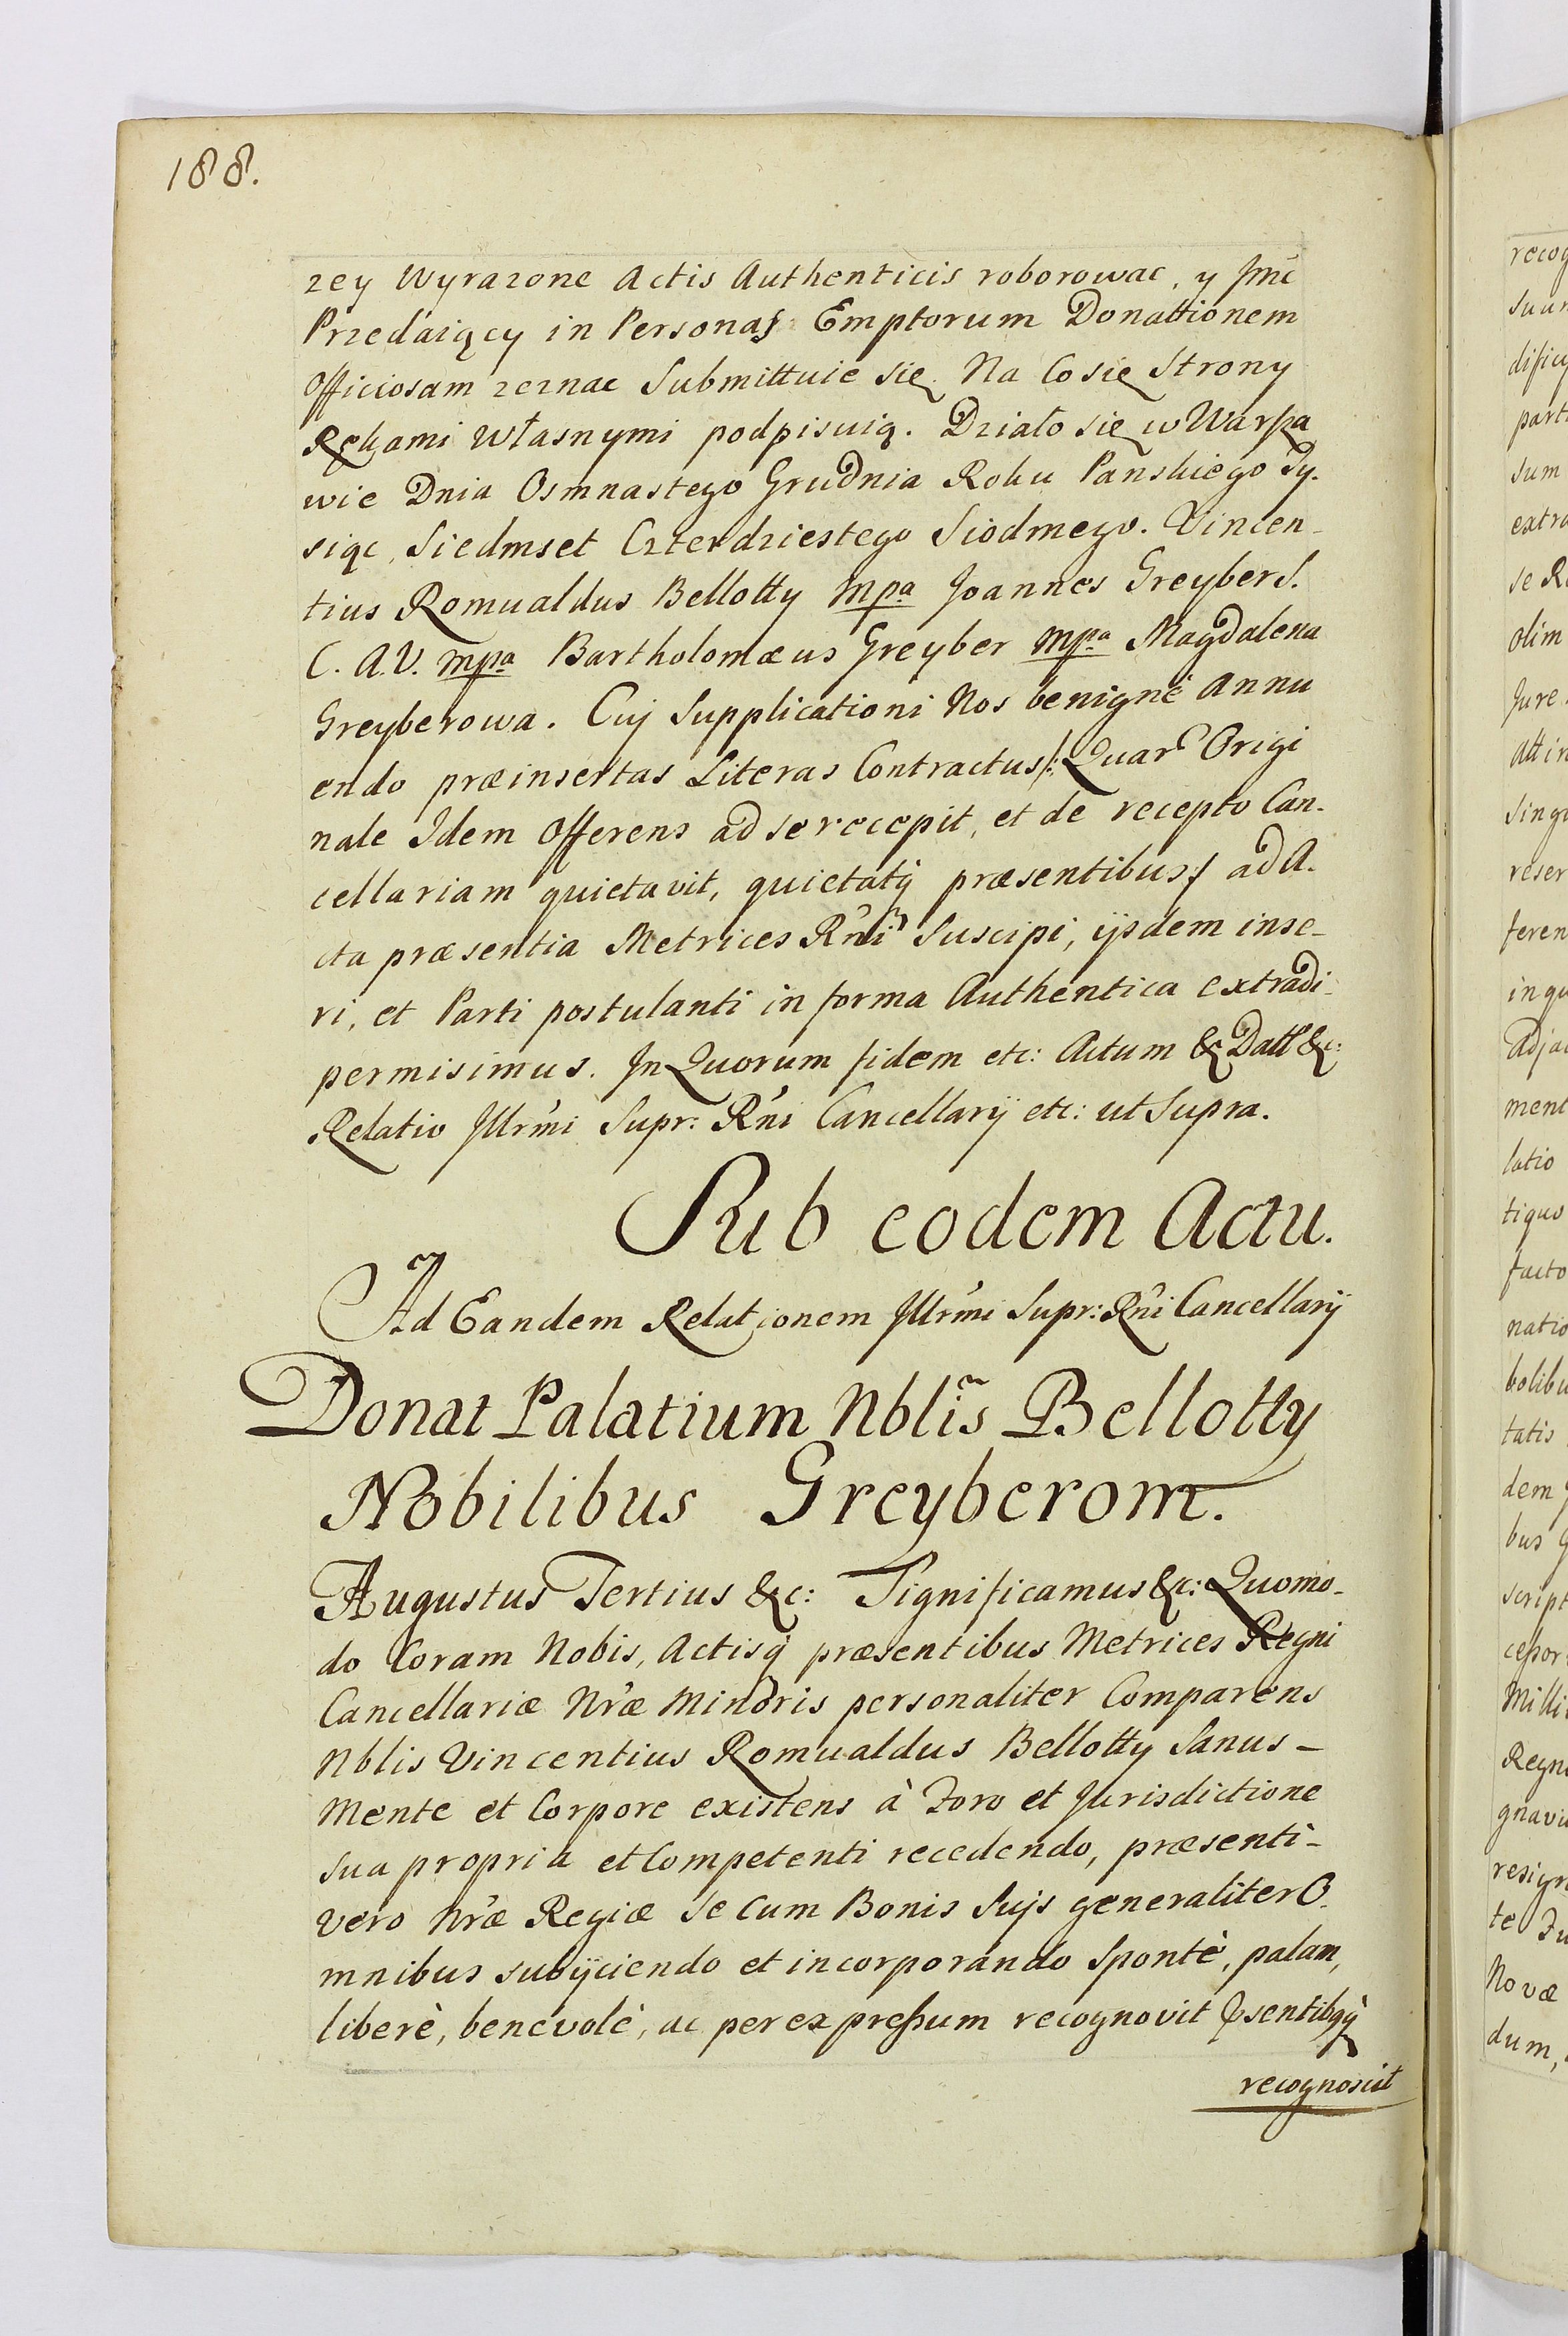 188.
zey Wyrazone Actis Authenticis roborowac, y Jmć
Przedaiący in Personas Emptorum Donattionem
Officiosam zeznac Submittuie się. Na Co się Strony
Rękami własnymi podpisuią. Działo się w Warsza
wie Dnia Osmnastego Grudnia Roku Panskiego Ty-
siąc, Siedmset Czterdziestego Siodmego. Vincen-
tius Romualdus Bellotty mpa Joannes Greyber S.
C. A. V. mpa Bartholomæus Greyber mpa Magdalena
Greyberowa. Cuj Supplicationi Nos benignè Annu
endo præinsertas Literas Contractus /: Quar Origi
nale Idem Offerens ad se recepit, et de recepto Can-
cellariam quietavit, quietatq̃ præsentibus :/ ad A-
cta præsentia Metrices Rñi Suscipi, ijsdem inse-
ri, et Parti postulanti in forma Authentica extradi-
permisimus. In Quorum fidem etc: Actum & Datt &c:
Relatio Jllrmi Supr: Rñi Cancellarij etc: ut Supra.
Sub eodem Actu.
Ad Eandem Relationem Jllrmi Supr: Rñi Cancellarij
Donat Palatium Nblis̃ Bellotty
Nobilibus Greyberom.
Augustus Tertius &c: Significamus &c: Quomo-
do Coram Nobis, Actisq̃ præsentibus Metrices Regni
Cancellariæ Nræ Minoris personaliter Comparens
Nblis Vincentius Romualdus Bellotty Sanus-
Mente et Corpore existens à Foro et Jurisdictione
sua propria et Competenti recedendo, præsenti-
vero Nræ Regiæ se Cum Bonis Sujs generaliter O-
mnibus subijciendo et incorporando Spontè, palam,
liberè, benevolè, ac per expressum recognovit Psentibq̃
recognoscit
recog
suum
sum
extra
se R
olim
Jure
singu
reser
feren
in qu
Adjac
ment
latio
tiquo
facto
natio
bolibu
tatis
dem
bus
script
cessor
Milli
Regni
gnavi
resign
te Fu
Novæ
dum,